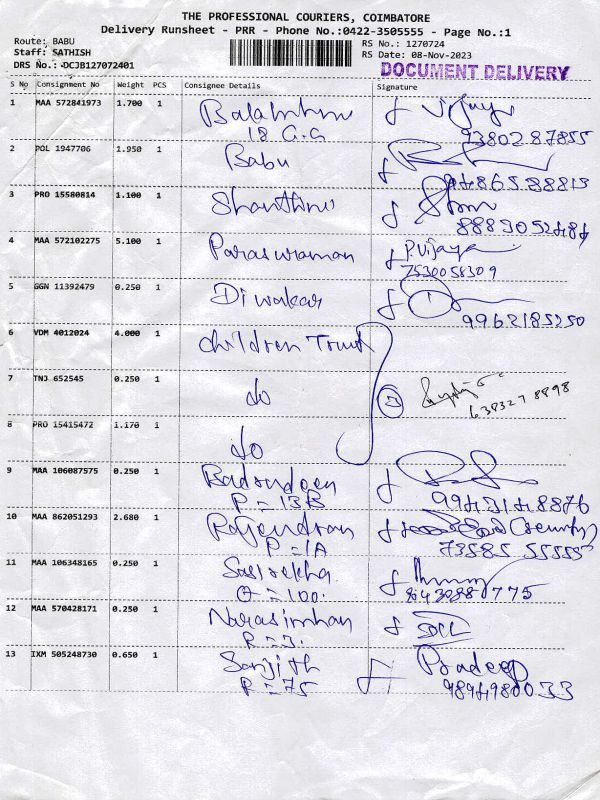 THE PROFESSIONAL COURIERS, COIMBATORE
Delivery Runsheet - PRR - Phone No.:0422-3505555 - Page No.:1
Route: BABU
Staff: SATHISH
DRS No.: DCJB127072401
RS No.: 1270724
RS Date: 08-Nov-2023
DOCUMENT DELIVERY
S No Consignment No Weight PCS Consignee Details Signature
1 MAA 572841973 1.700 1
18 G.G 9380287855
2 POL 1947706 1.950 1 Babu
9486588813
3 PRO 15580814 1.100 1
4 MAA 572102275 5.100 1 Parasuraman P.Vijaya
7530058309
5 GGN 11392479 0.250 1 Diwakar
9962185250
6 VDM 4012024 4.000 1 Children Trust
7 TNJ 652545 0.250 1 do 3
6383278898
8 PRO 15415472 1.170 1 do
9 MAA 106087575 0.250 1
P = 13B 9943148876
10 MAA 862051293 2.680 1 Rajendran (security)
P = 1A 73585 55555
11 MAA 106348165 0.250 1 Sasirekha
O = 100.
12 MAA 570428171 0.250 1 Narasimhan
R = 3.
13 IXM 505248730 0.650 1 Sanjith Pradeep
R = 75 9894980033